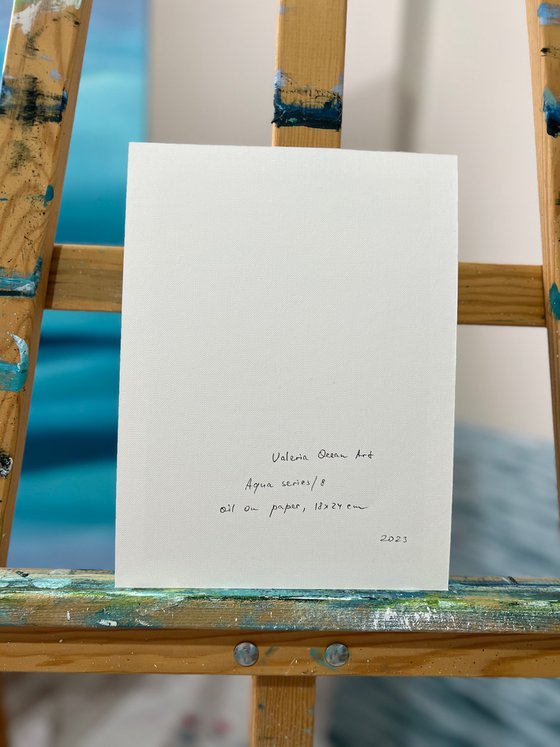 Valeria Ocean Art
Aqua series/8
oil on paper, 18x24 cm
2023